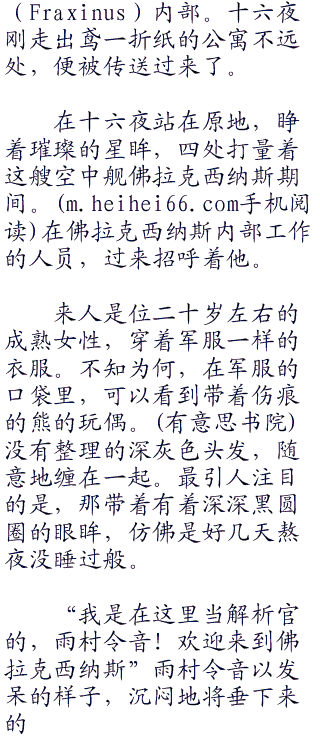 （Fraxinus）内部。十六夜
刚走出鸢一折纸的公寓不远
处，便被传送过来了。
在十六夜站在原地，睁
着璀璨的星眸，四处打量着
这艘空中舰佛拉克西纳斯期
间。(m.heihei66.com手机阅
读)在佛拉克西纳斯内部工作
的人员，过来招呼着他。
来人是位二十岁左右的
成熟女性，穿着军服一样的
衣服。不知为何，在军服的
口袋里，可以看到带着伤痕
的熊的玩偶。(有意思书院)
没有整理的深灰色头发，随
意地缠在一起。最引人注目
的是，那带着有着深深黑圆
圈的眼眸，仿佛是好几天熬
夜没睡过般。
“我是在这里当解析官
的，雨村令音！欢迎来到佛
拉克西纳斯”雨村令音以发
呆的样子，沉闷地将垂下来
的